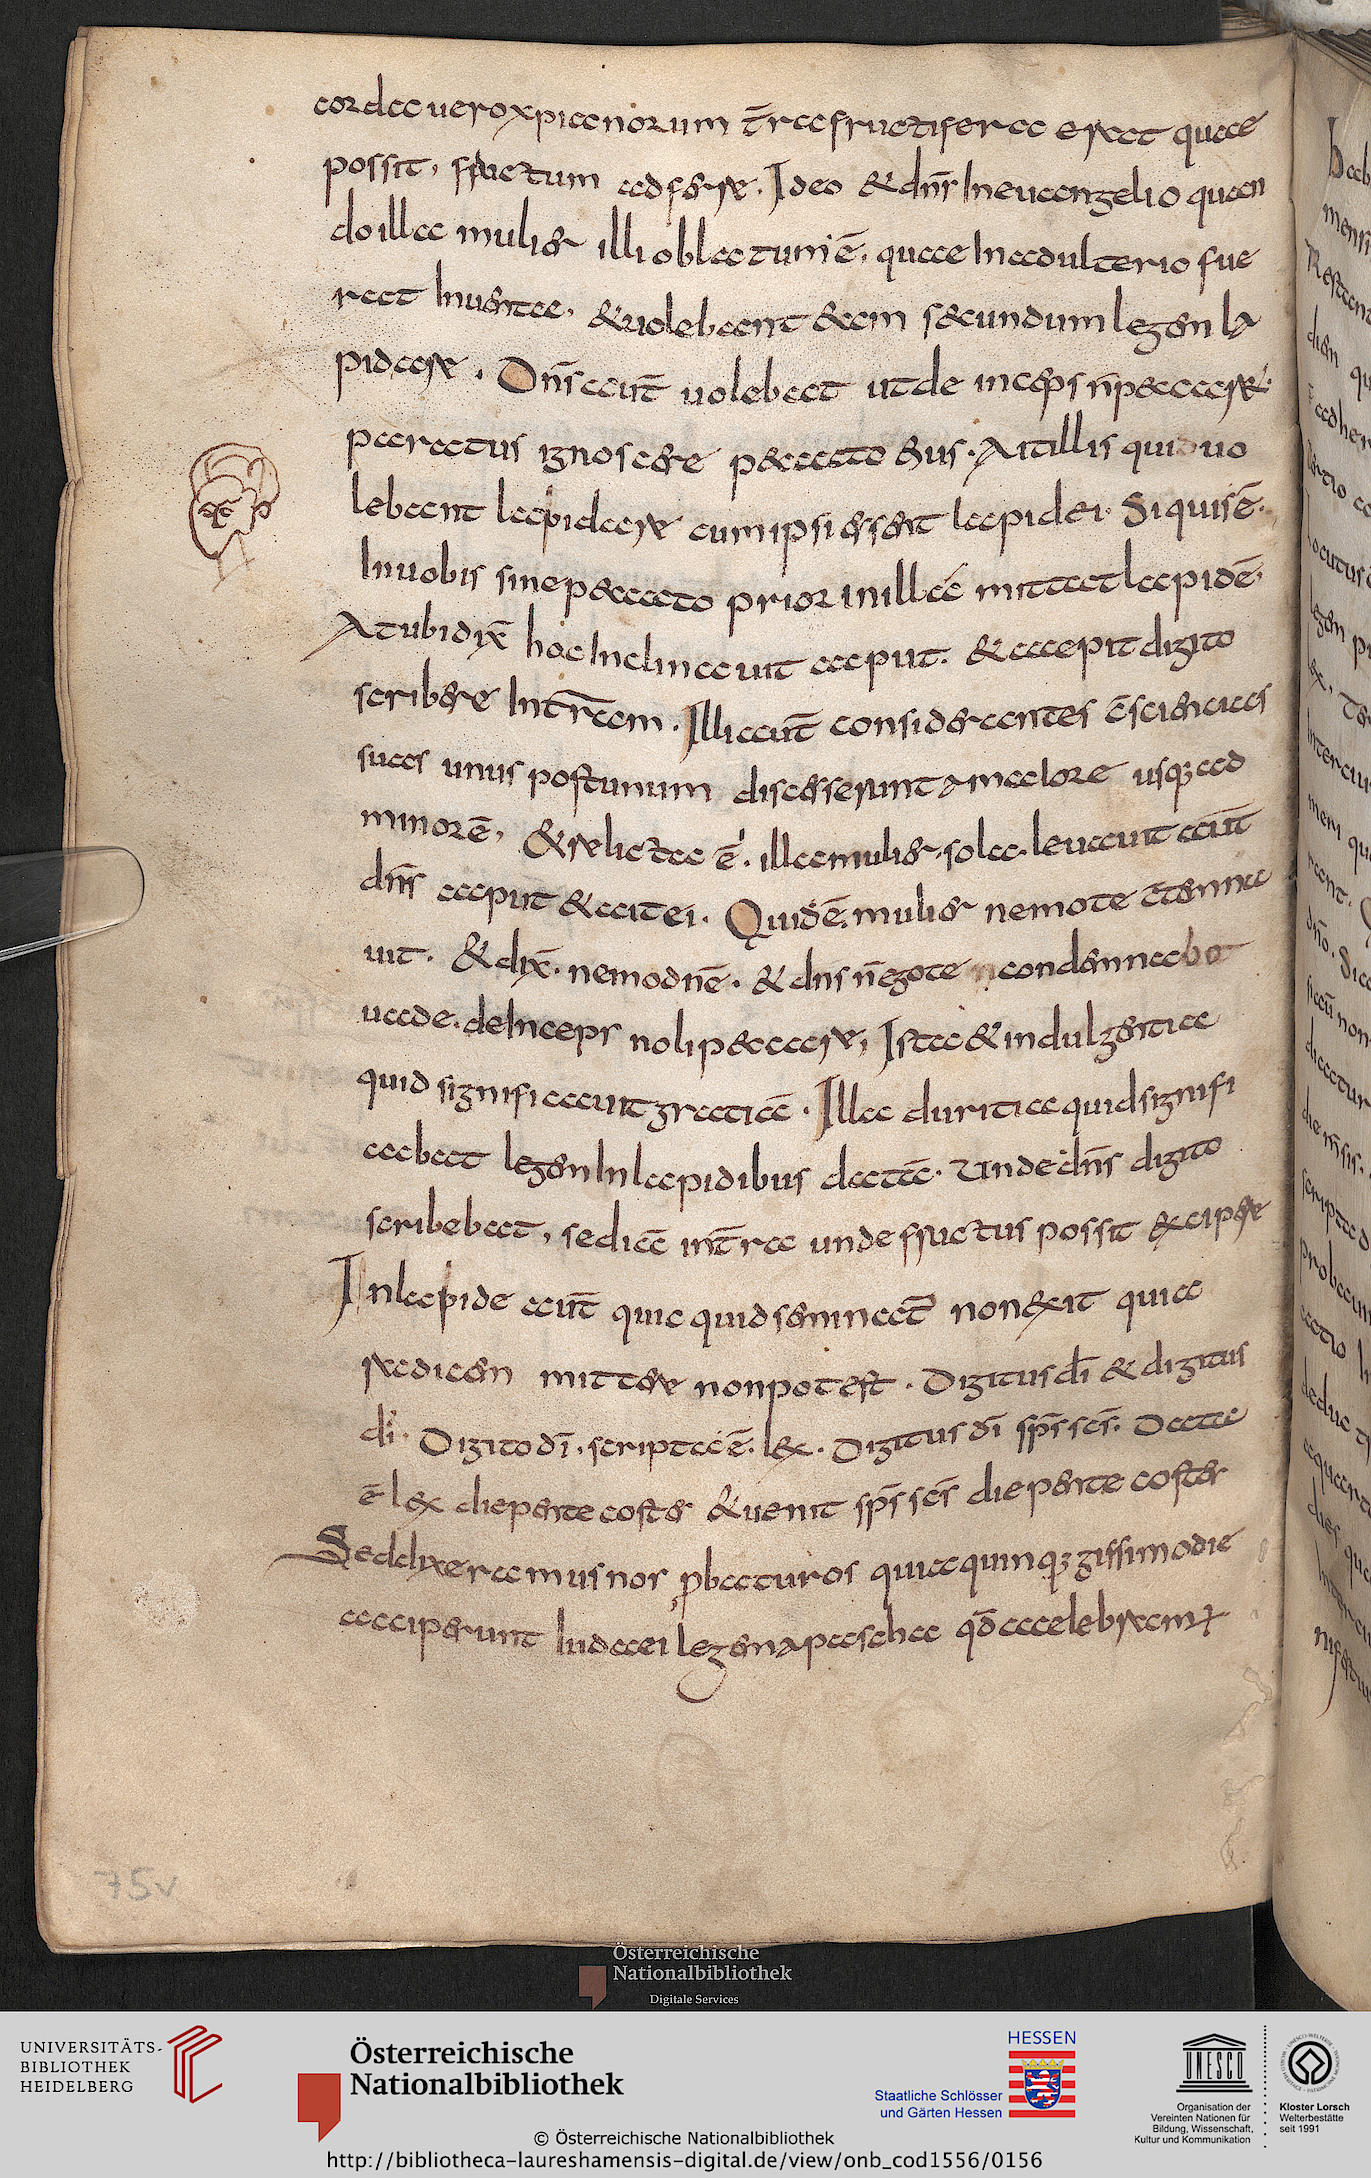 corda uero xpianorum t̄ra fructifera erat quae
possit, fructum adferre. Ideo & dn̄s In euangelio quan
do illa mulier illi oblatum ē, quae In adulterio fue
rat Inuenta, & uolebant eam secundum legem la
pidare. Dn̄s aut̄ uolebat ut de inceps n̄ peccare&
paratus ignoscere peccato eius. Ait illis qui uo
lebant lapidare cum ipsi essent lapidei. Si quis ē
In uobis sine peccato prior in illā mittat lapidē,
At ubi dix̄ hoc Inclinauit caput. & cepit digito
scribere In t̄ram. Illi aut̄ considerantes c̄sciencias
suas unus post unum discesserunt a maiore usq; ad
minorē, & relicta ē. illa mulier sola. leuauit aut̄
dn̄s caput & ait ei. Quid ē. mulier nemo te c̄demna
uit. & dix̄. nemo dn̄e. & dn̄s n̄ ego te condemnabo
uade. deInceps noli peccare, Ista & indulgentia
quid significauit gratiā. Illa duritia quid signifi
cabat legem In lapidibus datā. Unde dn̄s digito
scribebat, sed iā in t̄ra unde fructus possit excipere
In lapide aut̄ quic quid seminat̄ non exit quia
radicem mittere non potest. Digitus dī & digitus
dī. Digito dī. scripta ē. lex. Digitus dī sp̄s sc̄s. Data
ē lex die pentecosten & uenit sp̄s sc̄s die pentecosten
Sed dixeramus nos probaturos quia quinq; gissimo die
acciperunt Iudaei legem a pascha qd̄ caelebrant
75v
Österreichische
Nationalbibliothek
Digitale Services
UNIVERSITÄTS-
BIBLIOTHEK
HEIDELBERG
Österreichische
Nationalbibliothek
HESSEN
Staatliche Schlösser
und Gärten Hessen
UNESCO
Organisation der
Vereinten Nationen für
Bildung, Wissenschaft,
Kultur und Kommunikation
Kloster Lorsch
Welterbestätte
seit 1991
© Österreichische Nationalbibliothek
http://bibliotheca-laureshamensis-digital.de/view/onb_cod1556/0156